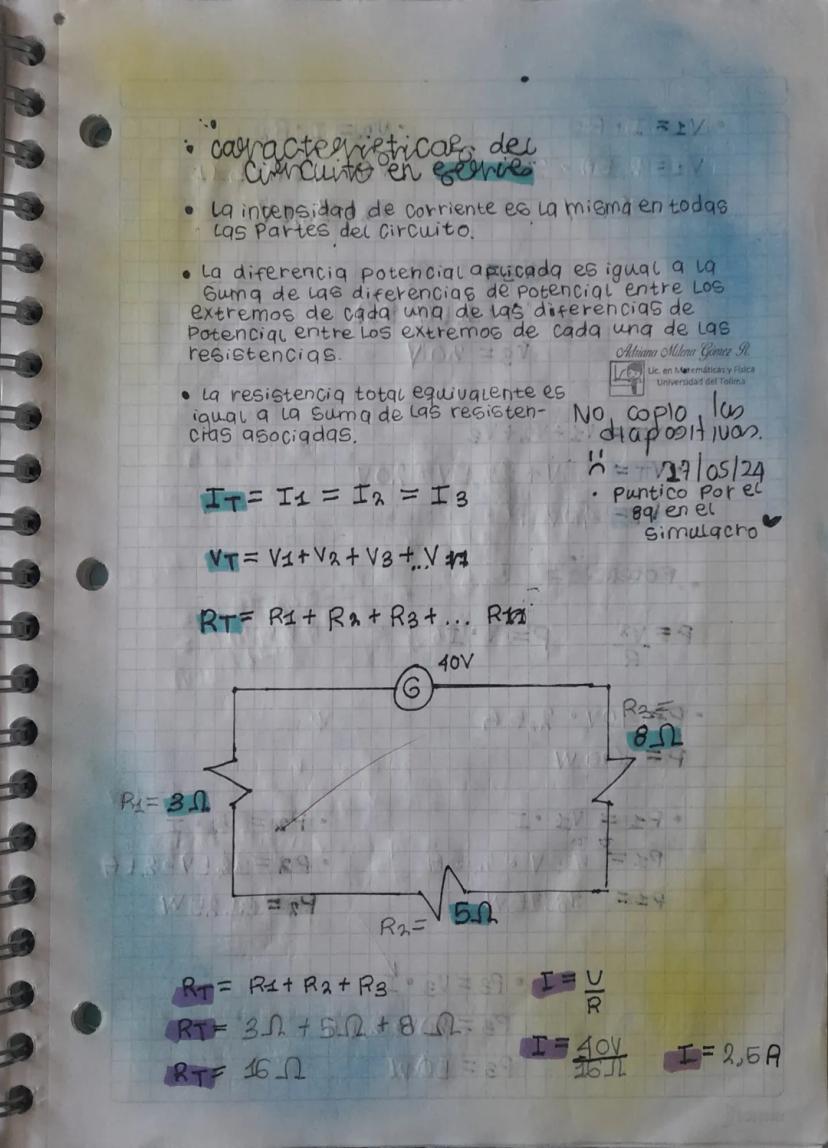 • características del
circuito en serie
• La intensidad de corriente es la misma en todas
las partes del circuito.
• La diferencia potencial aplicada es igual a la
suma de las diferencias de potencial entre los
extremos de cada una de las diferencias de
potencial entre los extremos de cada una de las
resistencias.
Adriana Milena Gómez R.
Lic. en Matemáticas y Física
Universidad del Tolima
• La resistencia total equivalente es
igual a la suma de las resisten-
cias asociadas.
No copio las
diapositivas.
17/05/24
• Puntico por el
89 en el
simulacro
IT = I1 = I2 = I3
VT = V1 + V2 + V3 + ... Vn
RT = R1 + R2 + R3 + ... Rn
40V
G
R3=
8Ω
R1= 3Ω
R2= 5Ω
RT = R1 + R2 + R3
RT = 3Ω + 5Ω + 8Ω
RT = 16Ω
I = V/R
I = 40V/16Ω
I = 2,5A